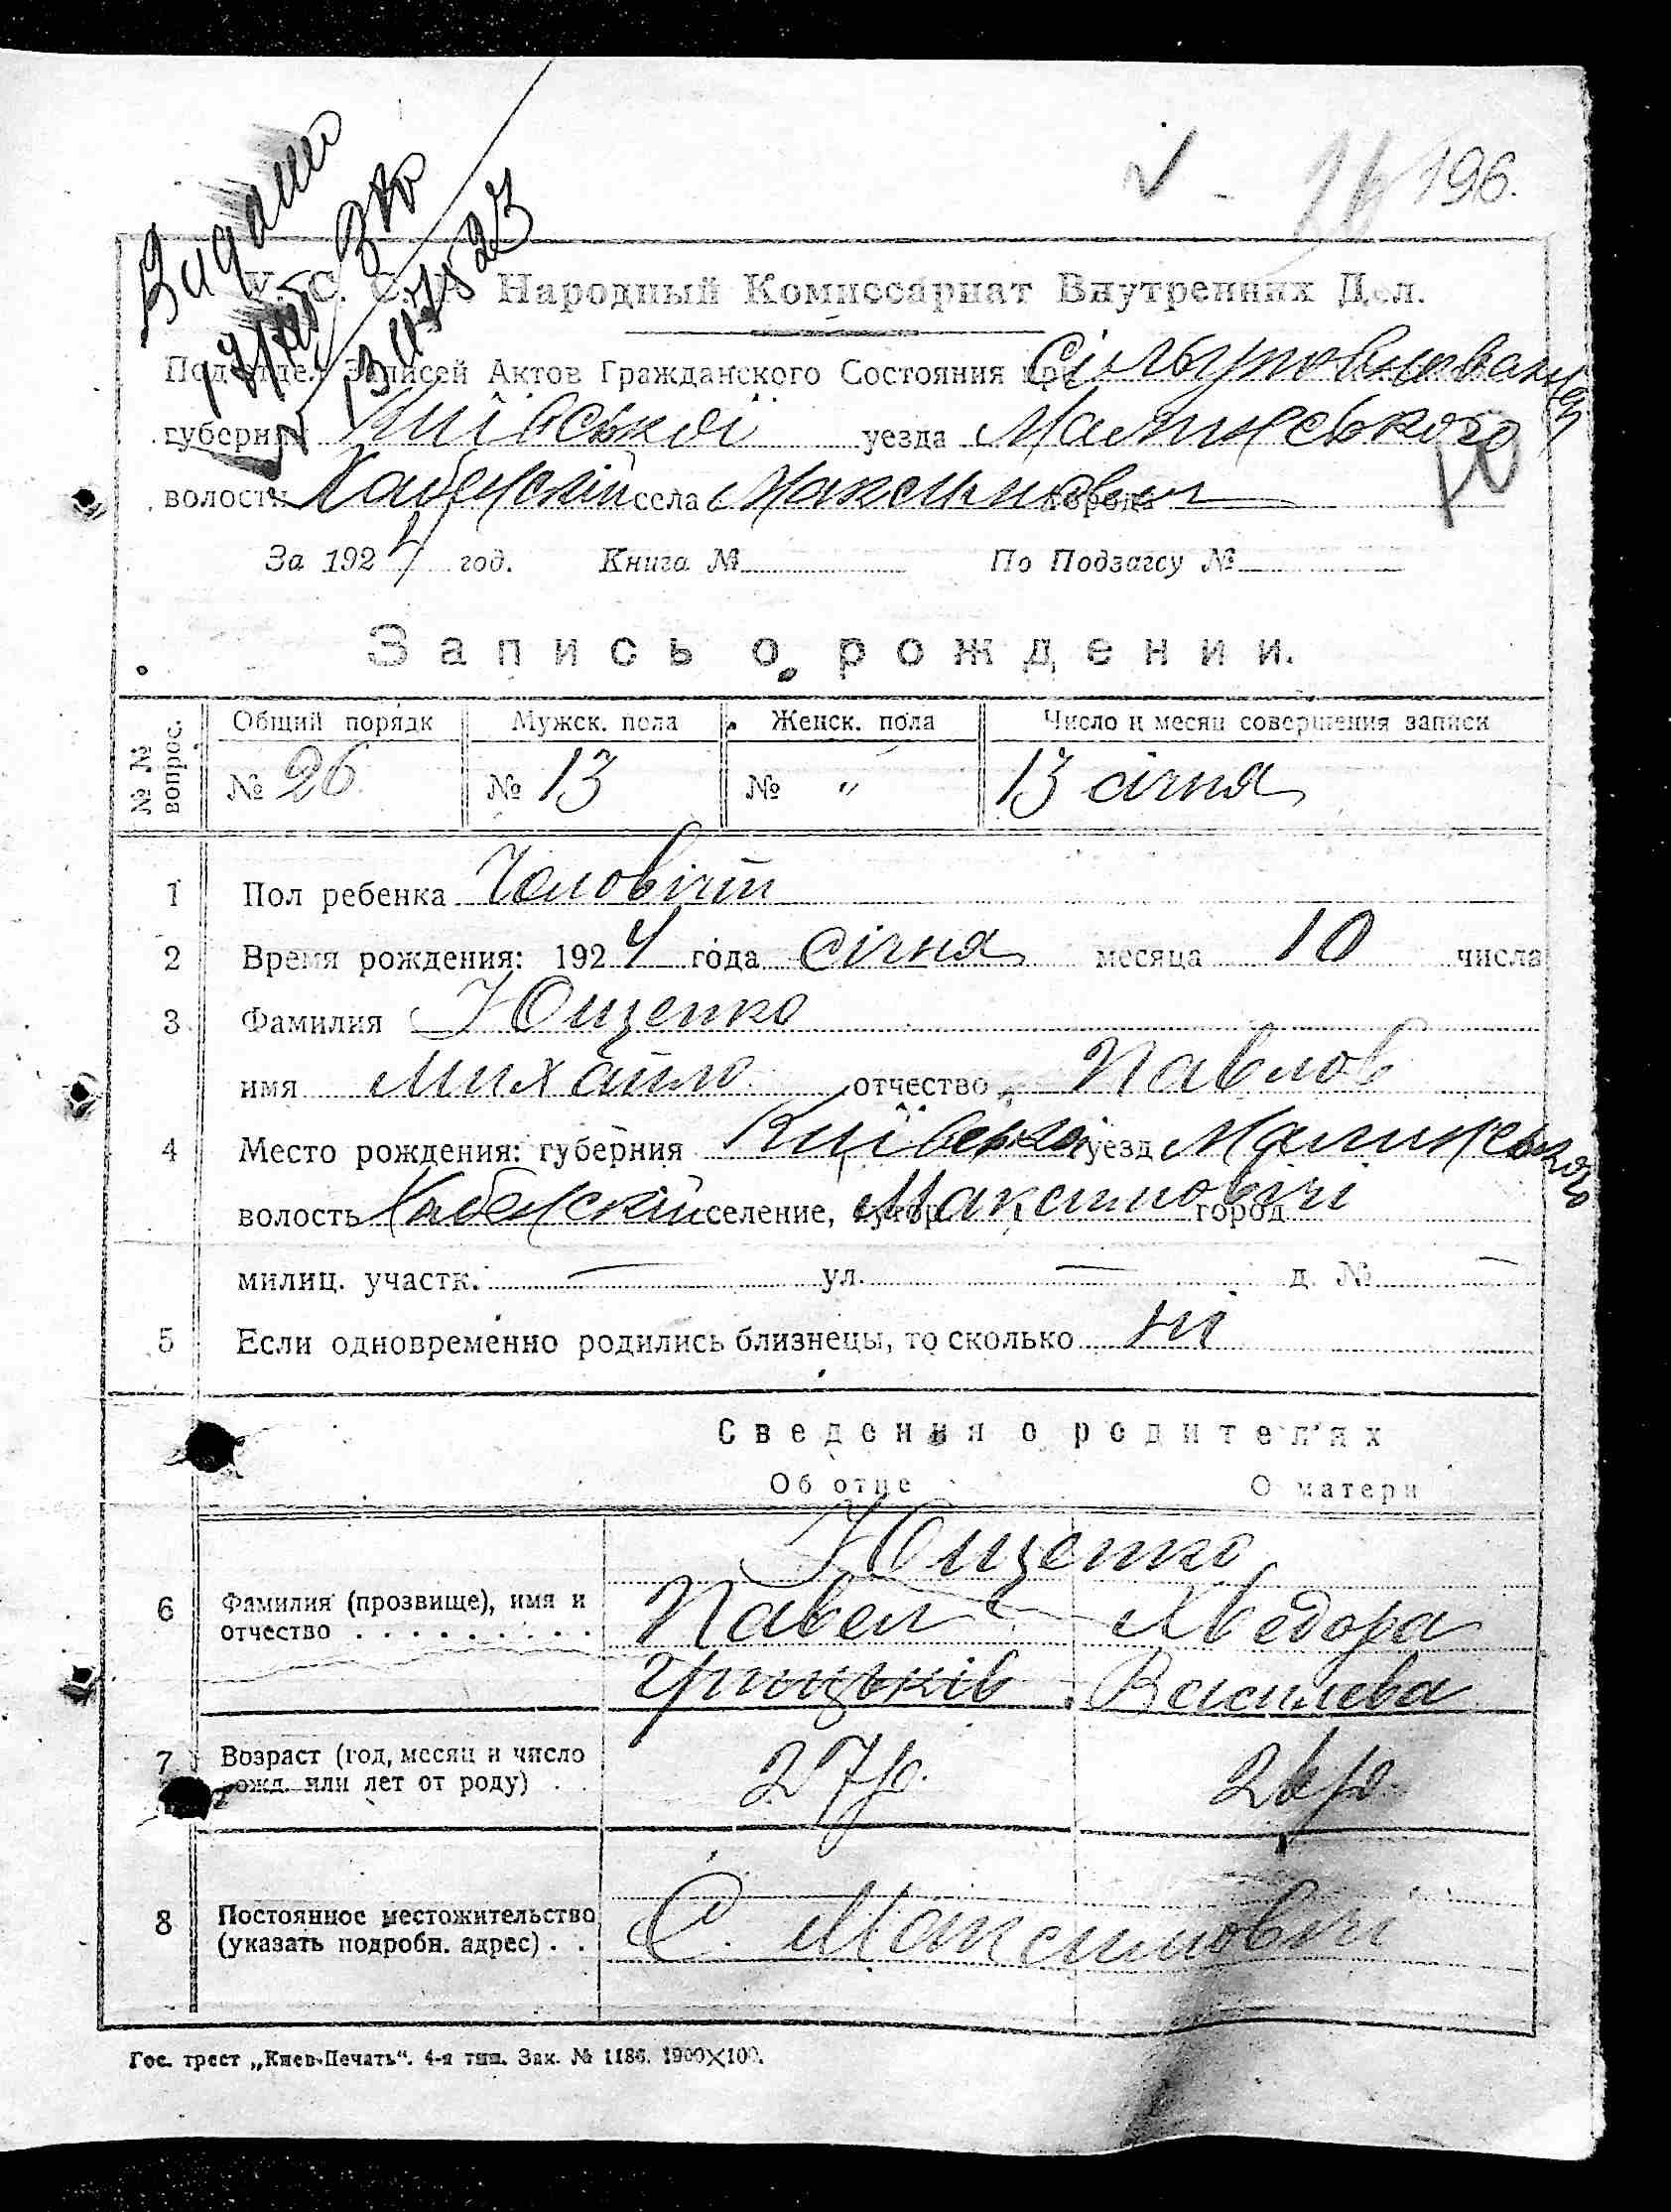 196.
Видано
У. С. С. Р. Народный Комиссариат Внутренних Дел.
Подотдел Записей Актов Гражданского Состояния при
губернии Київської уезда Малинського
волости Хабенской села Максимович города
За 1924 год. Книга № По Подзагсу №
Запись о рождении.
№№ вопрос. Общий порядк Мужск. пола Женск. пола Число и месяц совершения записи
№ 26 № 13 № " 13 січня
1 Пол ребенка Чоловічий
2 Время рождения: 1924 года січня месяца 10 числа
3 Фамилия Ющенко
имя Михайло отчество Павлов
4 Место рождения: губерния Київської уезд Малинського
волость Хабенской селение, хутор Максимовічі город
милиц. участк. — ул. — д. № —
5 Если одновременно родились близнецы, то сколько ні
Сведения о родителях
Об отце О матери
Ющенко
6 Фамилия (прозвище), имя и Павел Хведора
отчество . . . . . . . . . Грицьків Василева
7 Возраст (год, месяц и число 27 р. 26 р.
рожд. или лет от роду) . .
8 Постоянное местожительство
(указать подробн. адрес) . . С. Максимовічі
Гос. трест „Киев-Печать“. 4-я тип. Зак. № 1186. 1900×100.